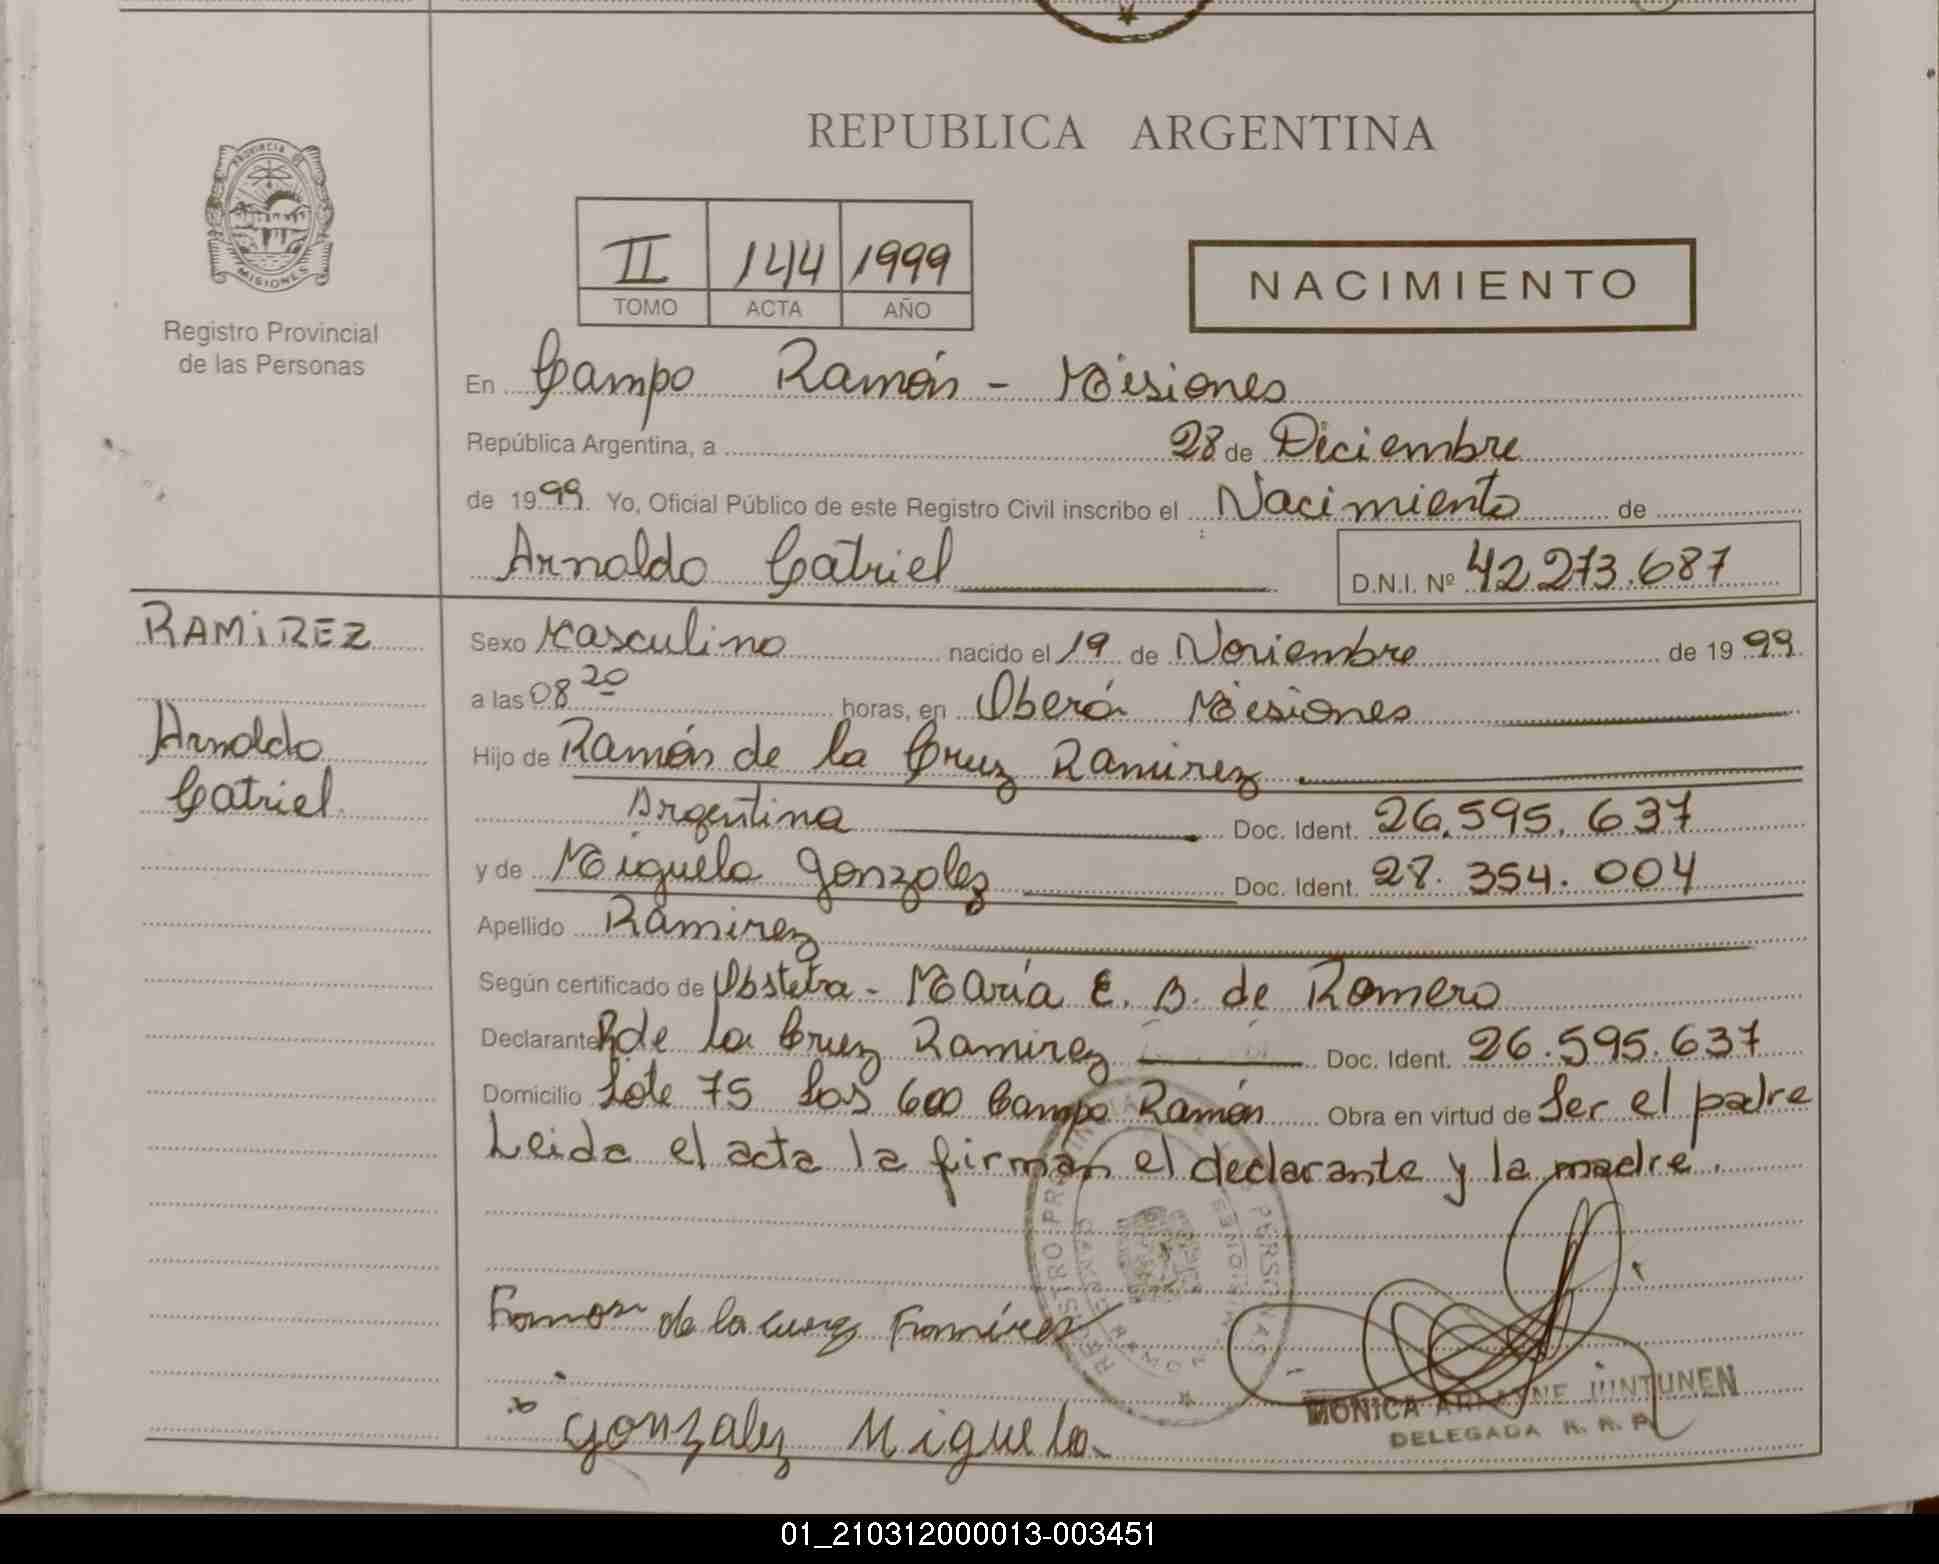 REPUBLICA ARGENTINA
PROVINCIA DE
MISIONES
Registro Provincial
de las Personas
II 144 1999
TOMO ACTA AÑO
NACIMIENTO
En Campo Ramón - Misiones
República Argentina, a 28 de Diciembre
de 1999. Yo, Oficial Público de este Registro Civil inscribo el Nacimiento de
Arnoldo Catriel D.N.I. Nº 42 273.687
RAMIREZ
Arnoldo
Catriel
Sexo Masculino nacido el 19 de Noviembre de 1999.
a las 08 20 horas, en Oberá Misiones
Hijo de Ramón de la Cruz Ramirez
Argentina Doc. Ident. 26.595.637
y de Miguela Gonzalez Doc. Ident. 28.354.004
Apellido Ramirez
Según certificado de Obstetra - María E. B. de Romero
Declarante R de la Cruz Ramirez Doc. Ident. 26.595.637
Domicilio Lote 75 Los 600 Campo Ramón Obra en virtud de Ser el padre
Leida el acta la firman el declarante y la madre.
REGISTRO PROVINCIAL DE LAS PERSONAS
CAMPO RAMON MISIONES
Ramon de la Cruz Ramirez
Gonzalez Miguela
MONICA ARIANNE JUNTUNEN
DELEGADA R. R. P.
01_210312000013-003451